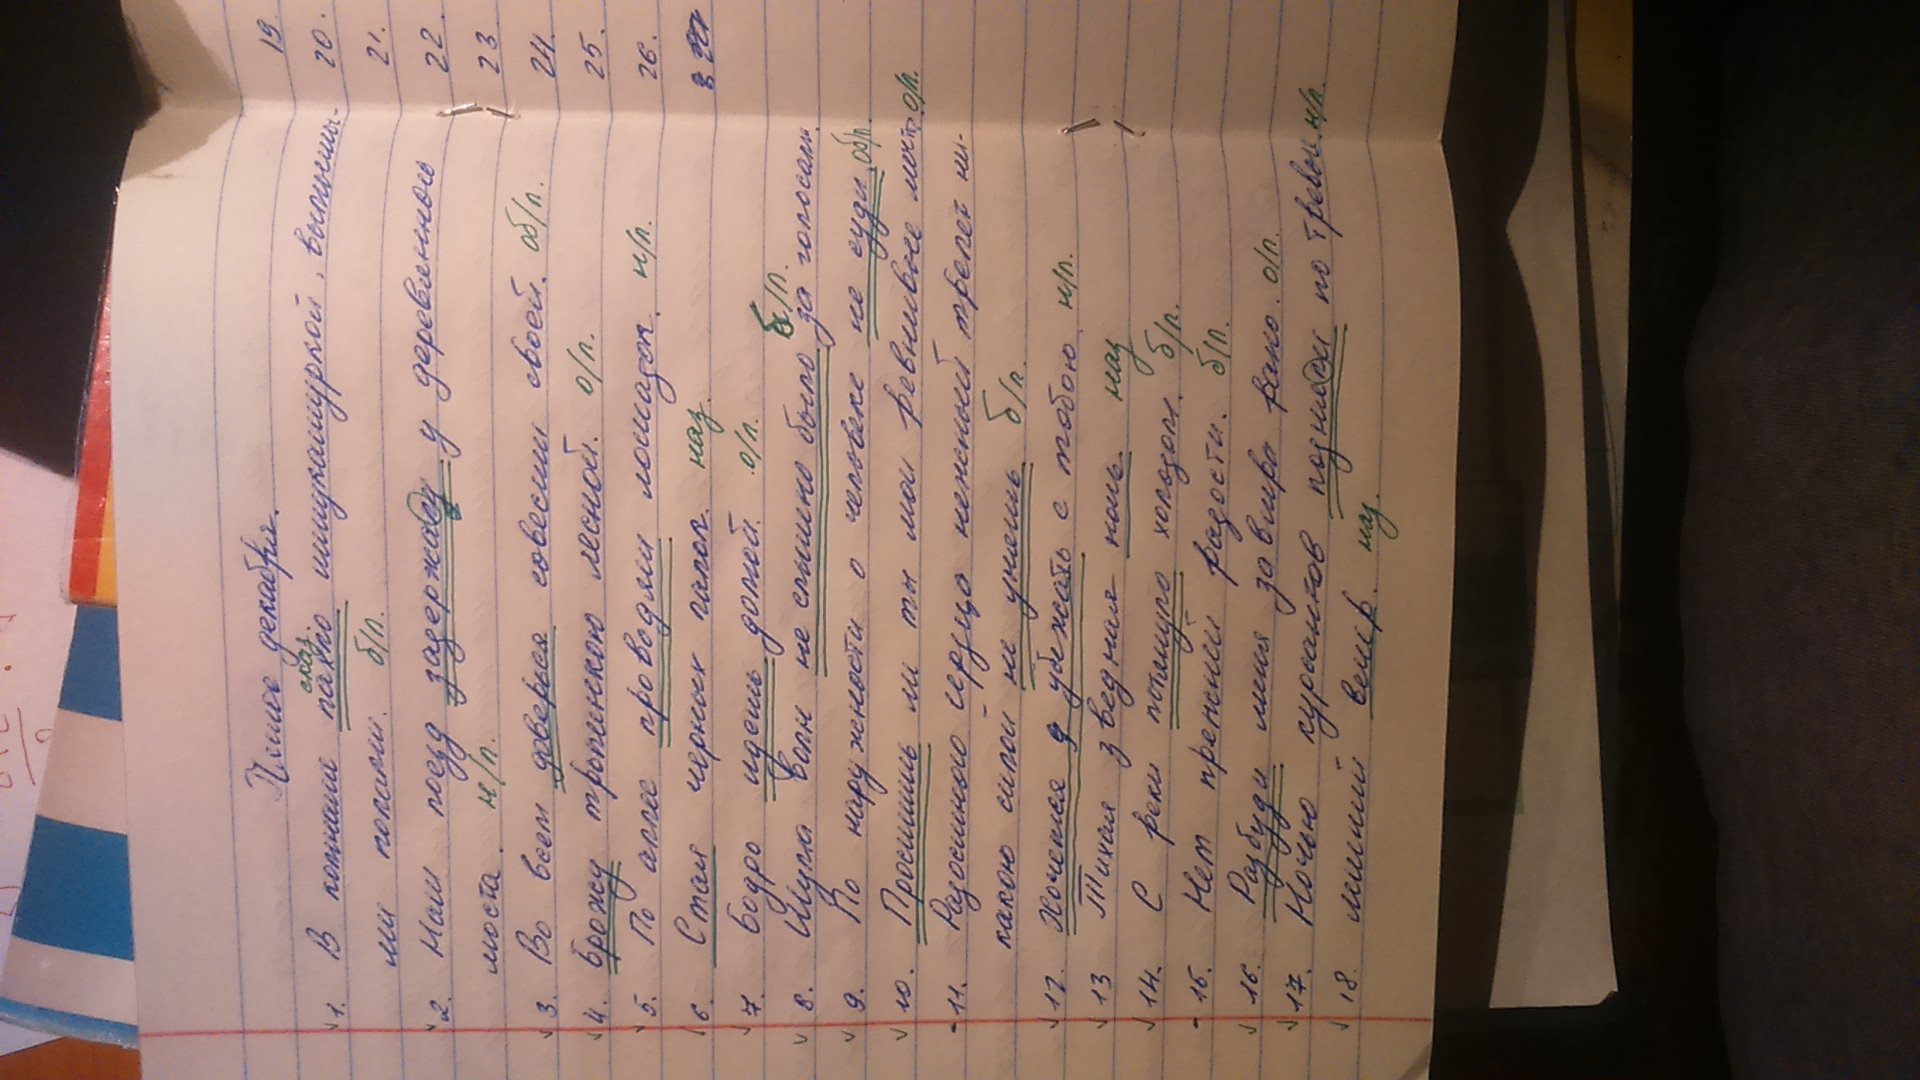 Пятое декабря.
сказ.
1. В комнате пахло штукатуркой, вымыты-
ми полами. б/л.
2. Наш поезд задержали у деревянного
моста. н/л.
3. Во всем доверься совести своей. об/л.
4. Брожу тропинкою лесной. о/л.
5. По аллее проводили лошадок. н/л.
6 Стая черных галок. наз.
7. Бодро идешь домой. о/л.
8. Шума волн не слышно было за голосами. б/л.
9. По наружности о человеке не суди. об/л.
10. Простишь ли ты мои ревнивые мечты. о/л.
11. Радостного сердца нежный трепет ни-
какою силой не уймешь б/л.
12. Хочется убежать с тобою. н/л.
13 Тихая звездная ночь. наз
14. С реки потянуло холодом. б/л.
15. Нет прежней радости. б/л.
16. Разбуди меня завтра рано. о/л.
17. Ночью курсантов подняли по тревоге. н/л.
18. Зимний вечер. наз.
19
20.
21.
22
23
24.
25.
26.